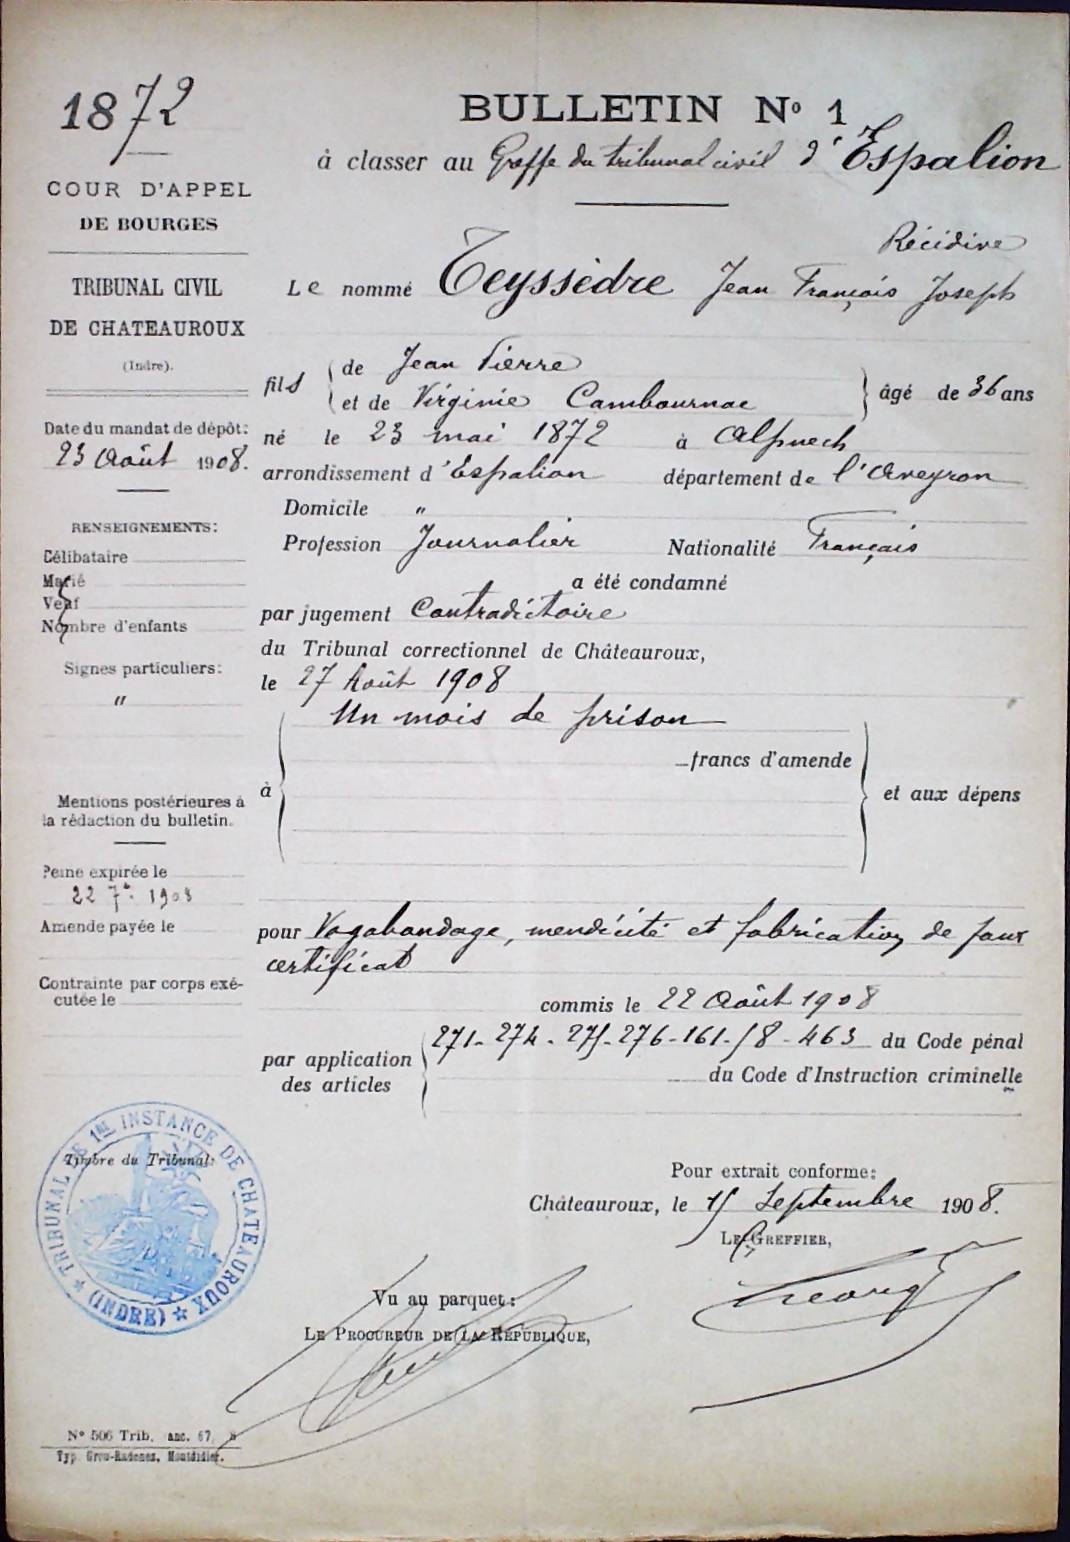 1872
COUR D'APPEL
DE BOURGES
TRIBUNAL CIVIL
DE CHATEAUROUX
(Indre).
Date du mandat de dépôt:
23 Août 1908.
RENSEIGNEMENTS:
Célibataire
Marié
Veuf
Nombre d'enfants
Signes particuliers:
"
Mentions postérieures à
la rédaction du bulletin.
Peine expirée le
22 7bre 1908
Amende payée le
Contrainte par corps exé-
cutée le
BULLETIN No 1
à classer au Greffe du tribunal civil d'Espalion
Récidive
Le nommé Teyssèdre Jean François Joseph
fils de Jean Pierre
et de Virginie Cambournac âgé de 36 ans
né le 23 mai 1872 à Alpuech
arrondissement d'Espalion département de l'Aveyron
Domicile "
Profession Journalier Nationalité Français
a été condamné
par jugement Contradictoire
du Tribunal correctionnel de Châteauroux,
le 27 Août 1908
à Un mois de prison
francs d'amende
et aux dépens
pour Vagabondage, mendicité et fabrication de faux
certificat
commis le 22 Août 1908
par application des articles 271-274-275-276-161-58-463 du Code pénal
du Code d'Instruction criminelle
Timbre du Tribunal:
TRIBUNAL DE 1RE INSTANCE DE CHATEAUROUX
(INDRE)
Pour extrait conforme:
Châteauroux, le 15 Septembre 1908.
LE GREFFIER,
Vu au parquet:
LE PROCUREUR DE LA RÉPUBLIQUE,
N° 506 Trib. anc. 67 8
Typ. Grou-Radenez, Montdidier.